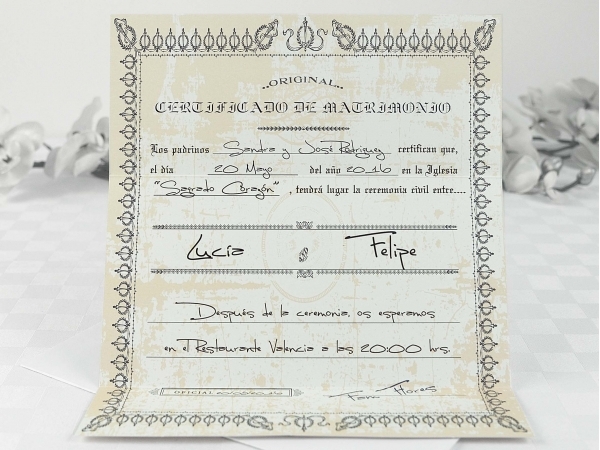 ..ORIGINAL..
CERTIFICADO DE MATRIMONIO
Los padrinos Sandra y José Rodríguez certifican que,
el día 20 Mayo del año 2016 en la Iglesia
"Sagrado Corazón" , tendrá lugar la ceremonia civil entre....
Lucía & Felipe
Después de la ceremonia, os esperamos
en el Restaurante Valencia a las 20:00 hrs.
OFICIAL
Fam Flores